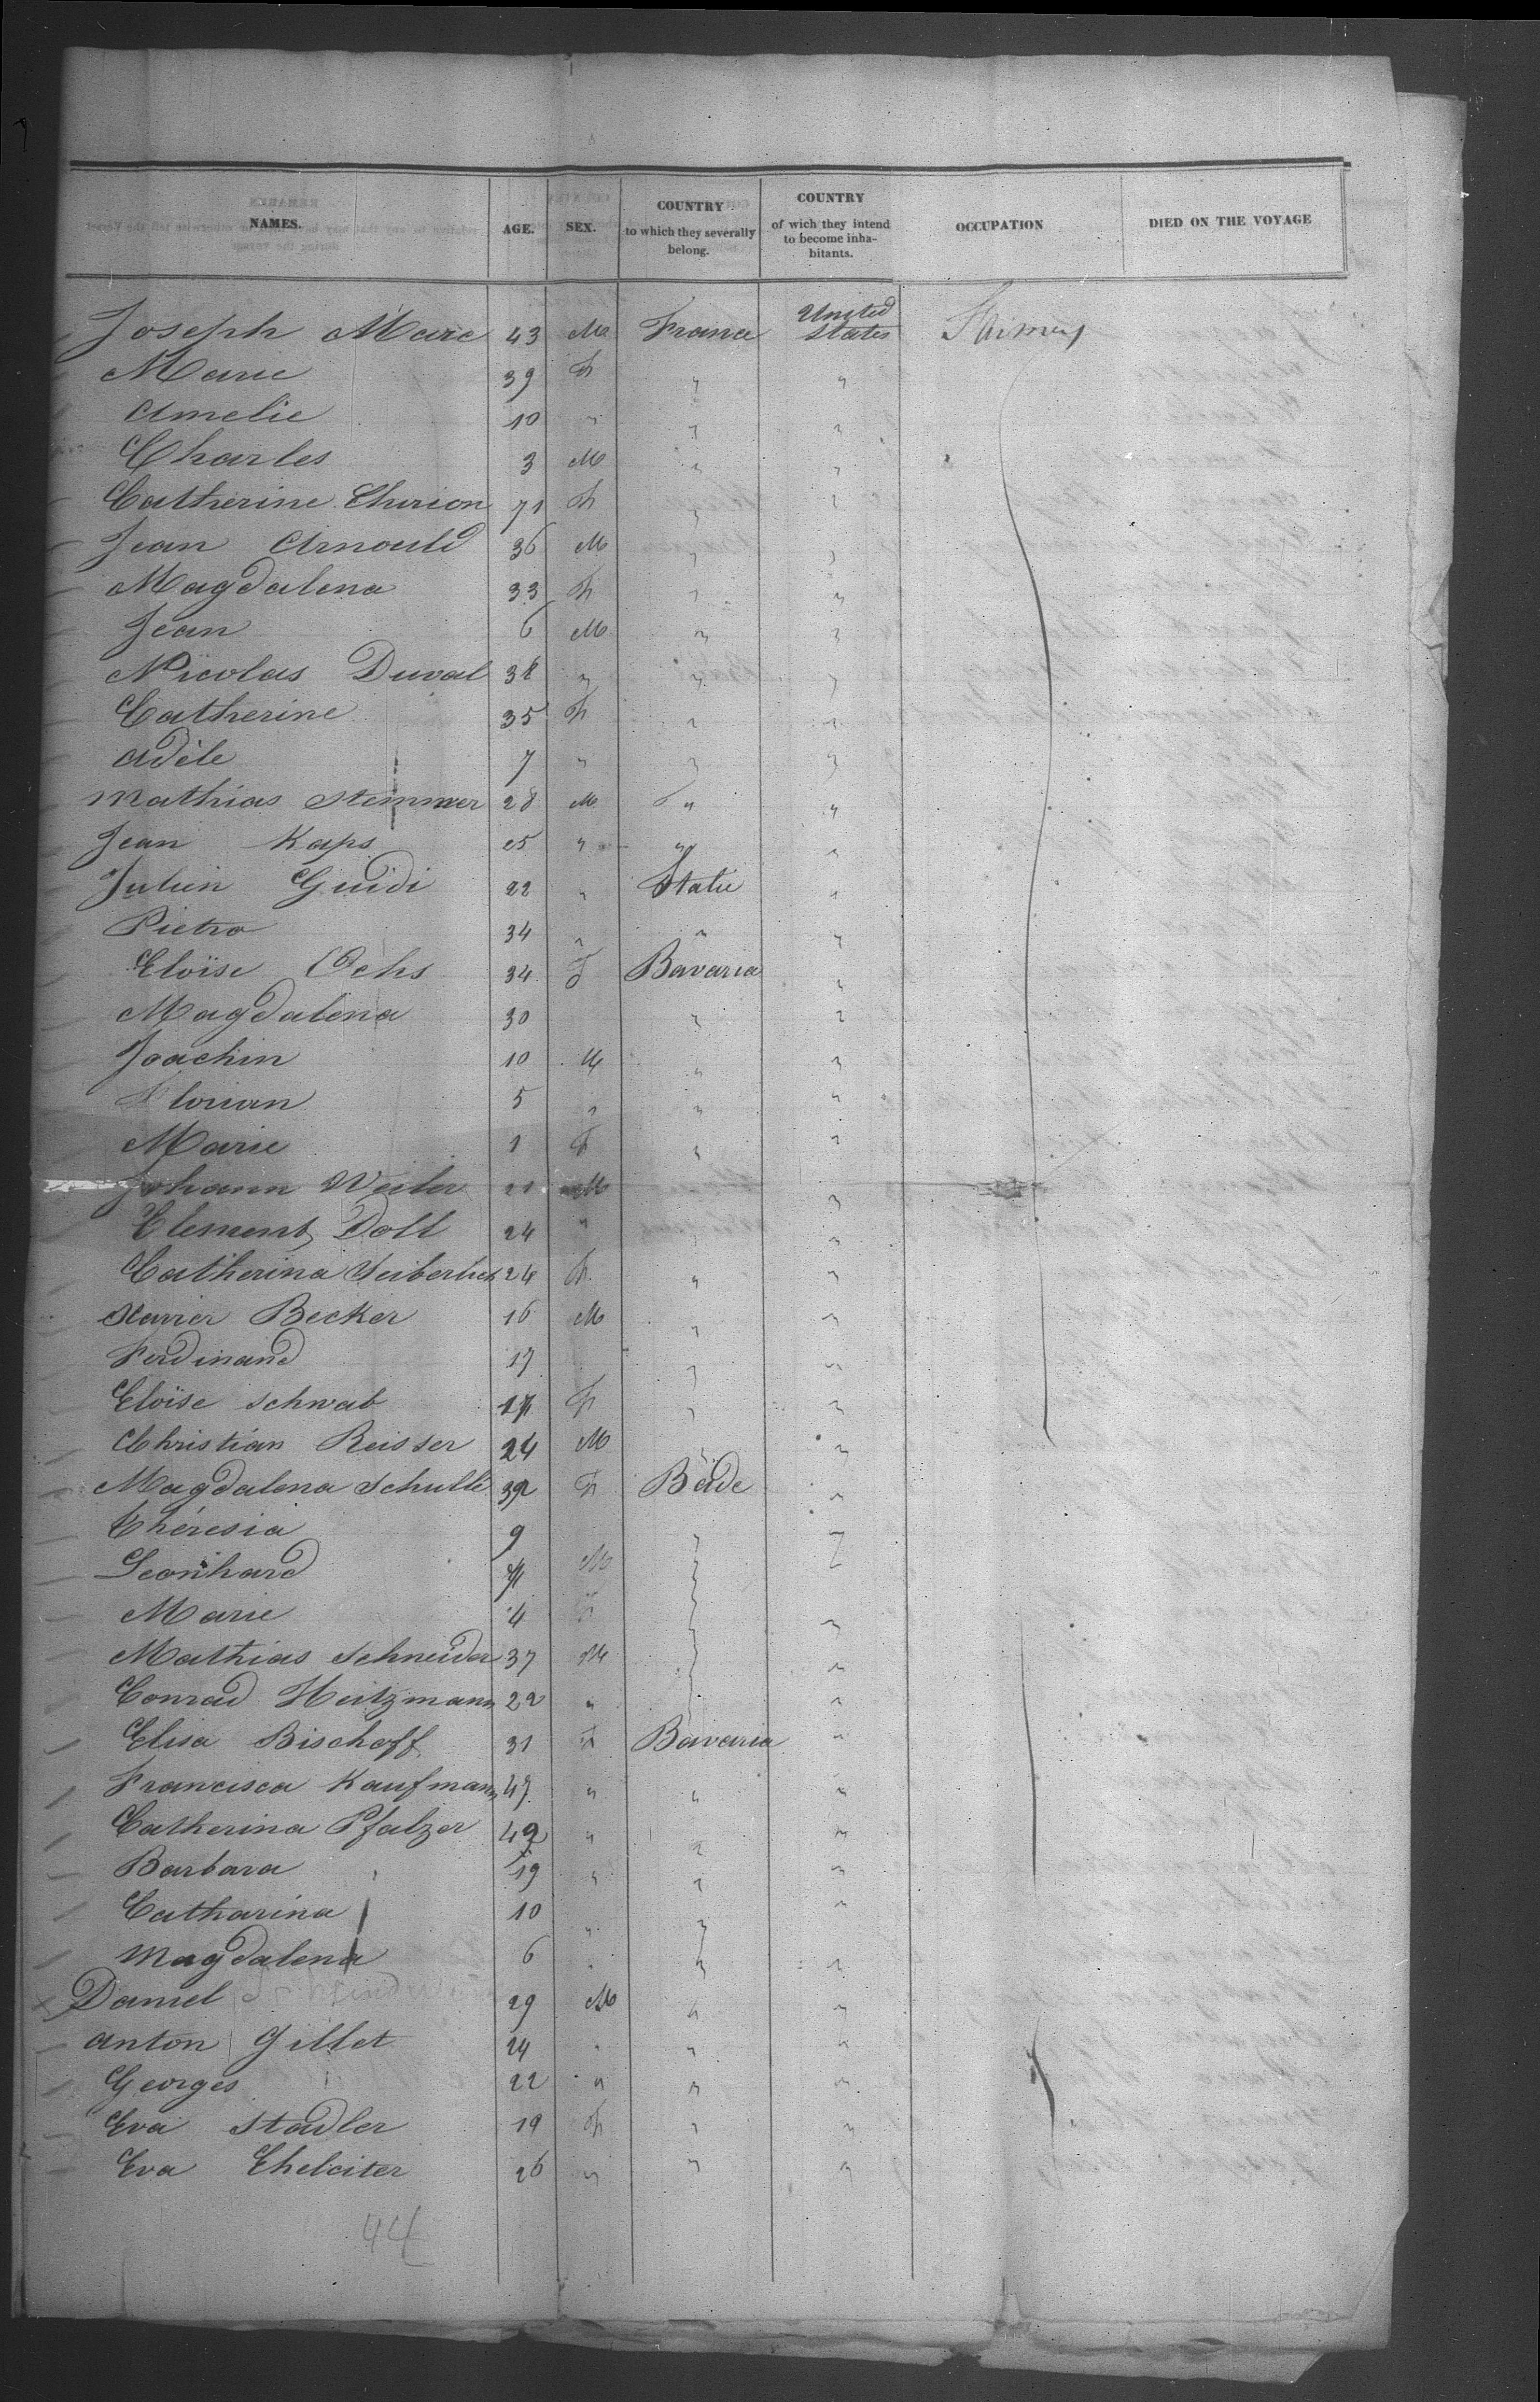 NAMES. AGE. SEX. COUNTRY to which they severally belong. COUNTRY of wich they intend to become inhabitants. OCCUPATION DIED ON THE VOYAGE
Joseph Marc 43 M France United States
Marie 39 F " "
Amelie 10 " " "
Charles 3 M " "
Catherine 71 F " "
Jean Arnould 36 M " "
Magdalena 33 F " "
Jean 6 M " "
Nicolas Duval 38 " " "
Catherine 35 F " "
Adèle 7 " " "
Mathias Stemmer 28 M " "
Jean Kaps 25 " " "
Julien Guidi 22 " Italie "
Pietro 34 " " "
Eloïse Ochs 34 F Bavaria "
Magdalena 30 " "
Joachin 10 M " "
Florian 5 " " "
Marie 1 F " "
Johann Weiler 21 M "
Clement Doll 24 " " "
Catherina 24 F " "
Xavier Becker 16 M " "
Ferdinand 17 " "
Eloïse Schwab 17 F " "
Christian Reisser 24 M " "
Magdalena Schulte 32 F Bade "
Théresia 9 " "
Leonhard M " "
Marie 4 F " "
Mathias Schneider 37 M " "
Conrad Heitzmann 22 " " "
Elisa Bischoff 31 F Bavaria "
Francisca Kaufmann 47 " " "
Catherina Pfalzer 42 " " "
Barbara 19 " " "
Catharina 10 " " "
Magdalena 6 " " "
Daniel 29 M " "
Anton Gillet 24 " " "
Georges 22 " " "
Eva Stadler 19 F " "
Eva Eheleiter 26 " " "
44